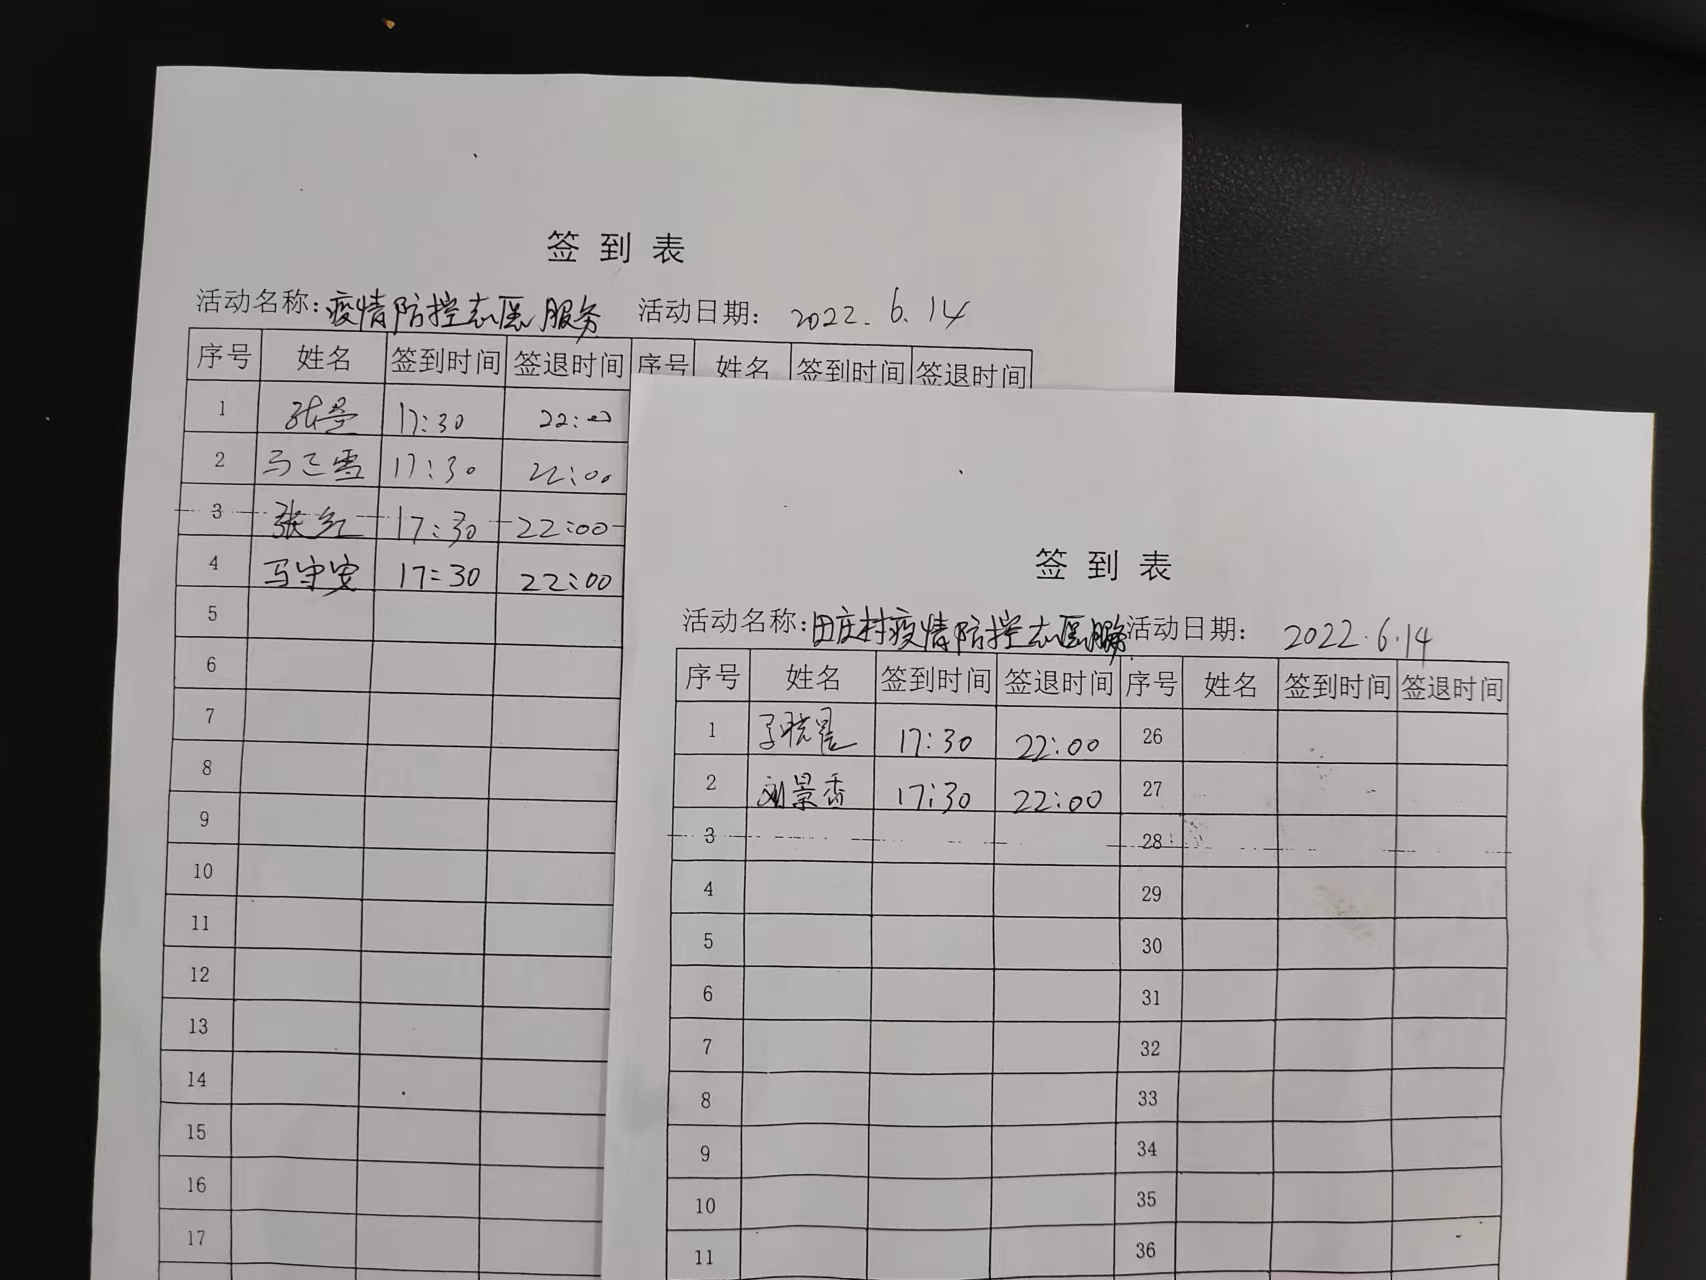 签到表
活动名称：疫情防控志愿服务 活动日期： 2022.6.14
序号 姓名 签到时间 签退时间 序号 姓名 签到时间 签退时间
1 17:30 22:00
2 17:30 22:00
3 张红 17:30 22:00
4 马守安 17:30 22:00
5
6
7
8
9
10
11
12
13
14
15
16
17
签到表
活动名称：田庄村疫情防控志愿服务 活动日期： 2022.6.14
序号 姓名 签到时间 签退时间 序号 姓名 签到时间 签退时间
1 17:30 22:00 26
2 刘景香 17:30 22:00 27
3 28
4 29
5 30
6 31
7 32
8 33
9 34
10 35
11 36